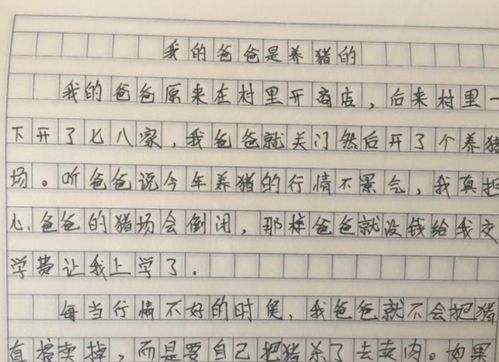 我的爸爸是养猪的
我的爸爸原来在村里开商店，后来村里一
下开了七八家，我爸爸就关门然后开了个养猪
场。听爸爸说今年养猪的行情不景气，我真担
心爸爸的猪场会倒闭，那样爸爸就没钱给我交
学费让我上学了。
每当行情不好的时候，我爸爸就不会把猪
直接卖掉，而是要自己把猪杀了去卖肉。如果